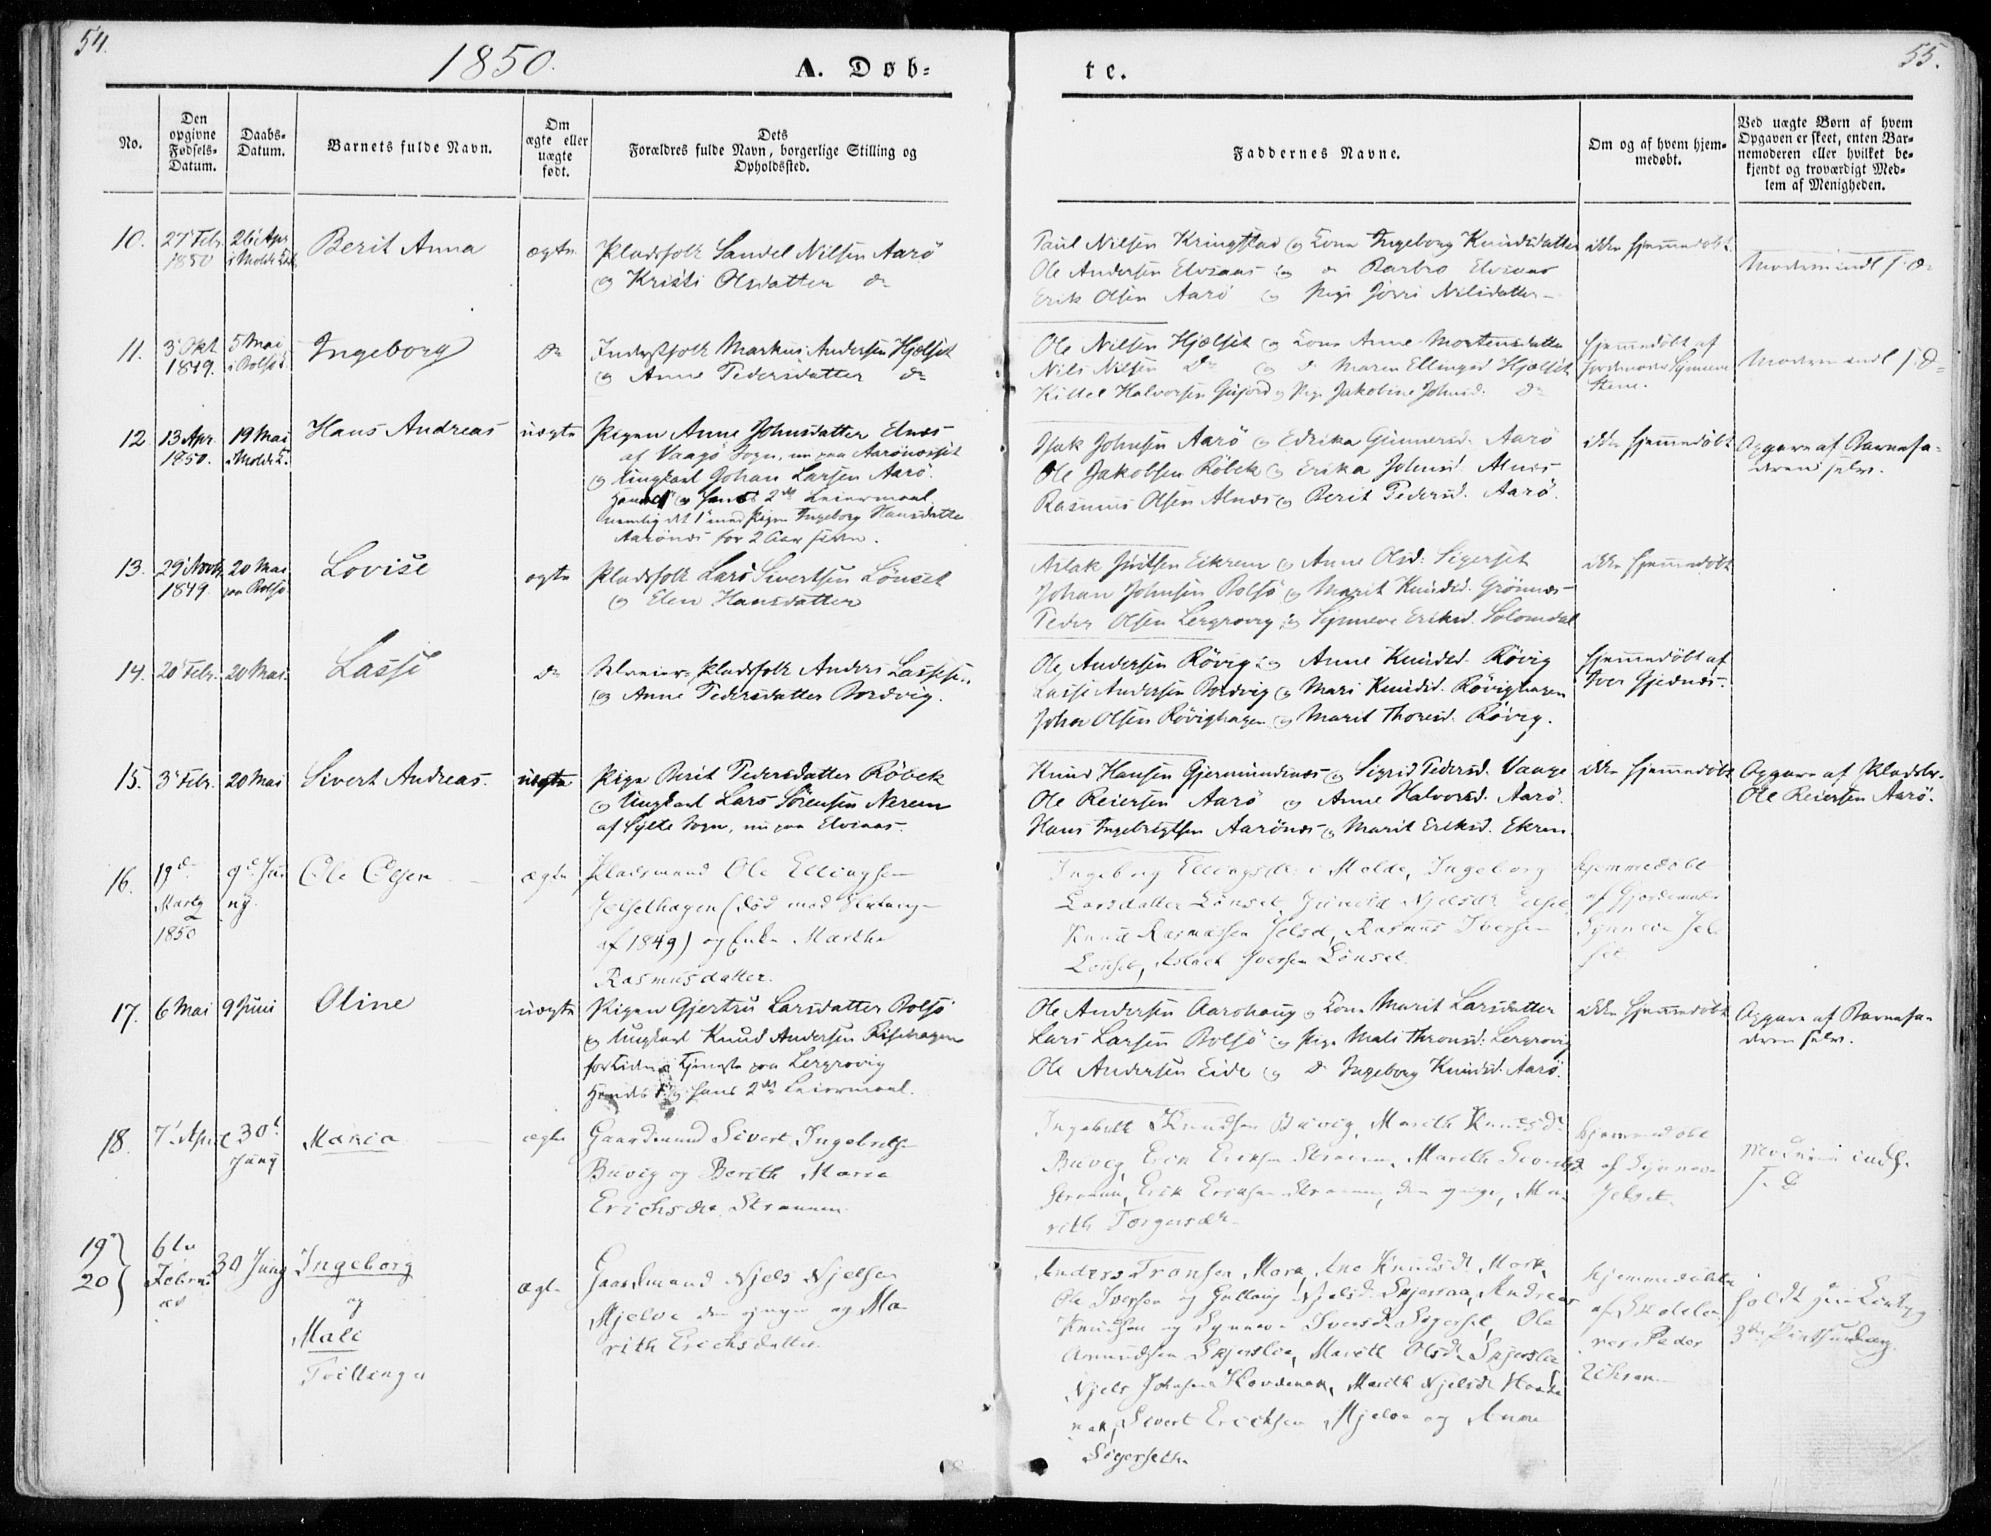 54.
1850.
A. Døb-
te.
55.
No.
Den
opgivne
Fødsels-
Datum.
Daabs-
Datum.
Barnets fulde Navn.
Om
ægte eller
uægte
født.
Dets
Forældres fulde Navn, borgerlige Stilling og
Opholdssted.
Faddernes Navne.
Om og af hvem hjem-
medøbt.
Ved uægte Børn af hvem
Opgaven er skeet, enten Bar-
nemoderen eller hvilket be-
kjendt og troværdigt Med-
lem af Menigheden.
10.
27 Febr.
1850
26 Apr.
i Molde
Berit Anna
ægte
Pladsfolk Sandel Nilsen Aarö
og Kristi Olsdatter do
Paul Nilsen Kringstad og Kone Ingeborg Knudsdatter
Ole Andersen Elvsaas og do Barbro Elvsaas
Erik Olsen Aarö og Pige Nilsdatter
ikke hjemmedöbt
11.
3 Okt.
1849.
5 Mai
i Bolsö
Ingeborg
do
Inderstfolk Markus Andersen Hjelset
og Anne Pedersdatter do
Ole Nilsen Hjelset og Kone Anne Mortensdatter
Nils Nilsen do og do Maren Ellingsd. Hjelset
Kittel Halvorsen og Pige Jakobine Johnsd. do
hjemmedöbt af
Jordemoder Synneve
12
13 Apr.
1850.
19 Mai
i Molde K.
Hans Andreas
uægte
Pigen Anne Johnsdatter Elnes
af Vaagö Sogn, nu paa Aarönesset
og Ungkarl Johan Larsen Aarö.
Hendes og hans 2det Leiermaal
nemlig det 1ste med Pigen Ingeborg Hansdatter
Aarönes for 2 Aar siden.
Isak Johnsen Aarö og Edrika Gunnersd. Aarö
Ole Jakobsen Röbek og Erika Johnsd. Alnes
Rasmus Olsen Alnes og Berit Pedersd. Aarö.
ikke hjemmedöbt
Opgave af Barnefa-
deren selv.
13.
29 Novbr.
1849.
20 Mai
paa Bolsö
Lovise
ægte
Pladsfolk Lars Sivertsen Lönset
og Elen Hansdatter
Aslak Eikrem og Anne Olsd. Sigerset
Johan Johnsen Bolsö og Marit Knudsd. Grönnes
Peder Olsen Lergrovig og Synneve Eriksd. Solemdal
ikke hjemmedöbt
14.
20 Febr.
20 Mai.
Lasse
do
Pladsfolk Anders Lassesen
og Anne Pedersdatter Bordvig.
Ole Andersen Rövig og Anne Knudsd. Rövig
Lasse Andersen Bordvig og Mari Knudsd. Rövighagen
Johan Olsen Rövighagen og Marit Thoresd. Rövig.
hjemmedöbt af
Iver Gjednes.
15.
3 Febr.
20 Mai
Sivert Andreas.
uægte
Pige Berit Pedersdatter Röbek
og Ungkarl Lars Sörensen Nerem
af Sylte Sogn, nu paa Elvsaas.
Knud Hansen Gjermundnes og Sigrid Pedersd. Vaage
Ole Reiersen Aarö og Anne Halvorsd. Aarö.
Hans Ingebrigtsen Aarönes og Marit Eriksd. Ekren
ikke hjemmedöbt
Opgave af Pladsbr.
Ole Reiersen Aarö.
16.
19d
Marty
1850
9d Ju-
ny.
Ole Olsen
ægte
Pladsmand Ole Ellingsen
Jelsethagen (död med Slutning
af 1849) og Enke Marthe
Rasmusdatter.
Ingeborg Ellingsdr i Molde, Ingeborg
Larsdatter Lönset, Njelsdr Jelset
Knud Rasmussen Jelset, Rasmus Iversen
Lönset, Aslack Iversen Lönset.
hjemmedöbt
af Gjordemoder
Synneve Jel-
set
17.
6 Mai
9 Juni
Oline
uægte
Pigen Gjertru Larsdatter Bolsö
og Ungkarl Knud Andersen Risehagen
for tiden i Tjeneste paa Lergrovig
Hendes 1ste og hans 2det Leiermaal.
Ole Andersen Aarohaug og Kone Marit Larsdatter
Lars Larsen Bolsö og Pige Mali Thronsd. Lergrovig
Ole Andersen Eide og do Ingeborg Knudsd. Aarö.
ikke hjemmedöbt
Opgave af Barnefa-
deren selv.
18.
7 April
30t
Juny
Maria
ægte
Gaardmand Sivert Ingebretsen
Buvig og Berith Maria
Erichsdr. Strømmen
Ingebrett Knudsen Buvig, Marith Knudsdr
Buvig, Erik Eriksen Strømmen, Marith Sivertsd
Strømmen, Erik Eriksen Strømmen, den yngre, Ma-
rith Torgersdr
hjemmedöbt
af Synneve
Jelset.
Moderen indl.
19
20
6te
Februa-
ar
30 Juny
Ingeborg
og
Mali
Tvillinger
ægte
Gaardmand Njels Njelsen
Mjelve den yngre og Ma-
rith Erichsdatter.
Anders Tronsen Mork, Ane Knudsdr Mork,
Ole Iversen og Gullaug Njelsdr Skjersaa, Andreas
Knudsen og Synneve Iversdr Sigerset, Ole
Amundsen Skjerslie, Marith Olsdr Skjerslie
Njels Johnsen Hovdenak, Marith Njelsdr Hovde-
nak, Sivert Ericksen Mjelve og Anne
Sigerseth
hjemmedöbte
af Skolelæ-
rer Peder
Eikrem